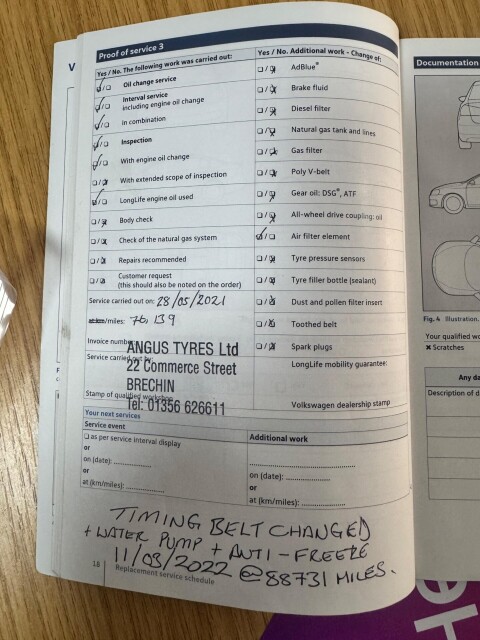 Proof of service 3
Yes / No. The following work was carried out:
Oil change service
Interval service
including engine oil change
In combination
Inspection
With engine oil change
With extended scope of inspection
LongLife engine oil used
Body check
Check of the natural gas system
Repairs recommended
Customer request
(this should also be noted on the order)
Service carried out on: 28/05/2021
km/miles: 76,139
Invoice number
Service carried out by:
ANGUS TYRES Ltd
22 Commerce Street
BRECHIN
Tel: 01356 626611
Stamp of qualified workshop
Yes / No. Additional work - Change of:
AdBlue®
Brake fluid
Diesel filter
Natural gas tank and lines
Gas filter
Poly V-belt
Gear oil: DSG®, ATF
All-wheel drive coupling: oil
Air filter element
Tyre pressure sensors
Tyre filler bottle (sealant)
Dust and pollen filter insert
Toothed belt
Spark plugs
LongLife mobility guarantee:
Volkswagen dealership stamp
Your next services
Service event
as per service interval display
or
on (date): ................
or
at (km/miles): ................
Additional work
................
on (date): ................
or
at (km/miles): ................
TIMING BELT CHANGED
+ WATER PUMP + ANTI-FREEZE
11/03/2022 @ 88731 MILES.
18 Replacement service schedule
Documentation
Fig. 4 Illustration.
Your qualified wo
Scratches
Any da
Description of d